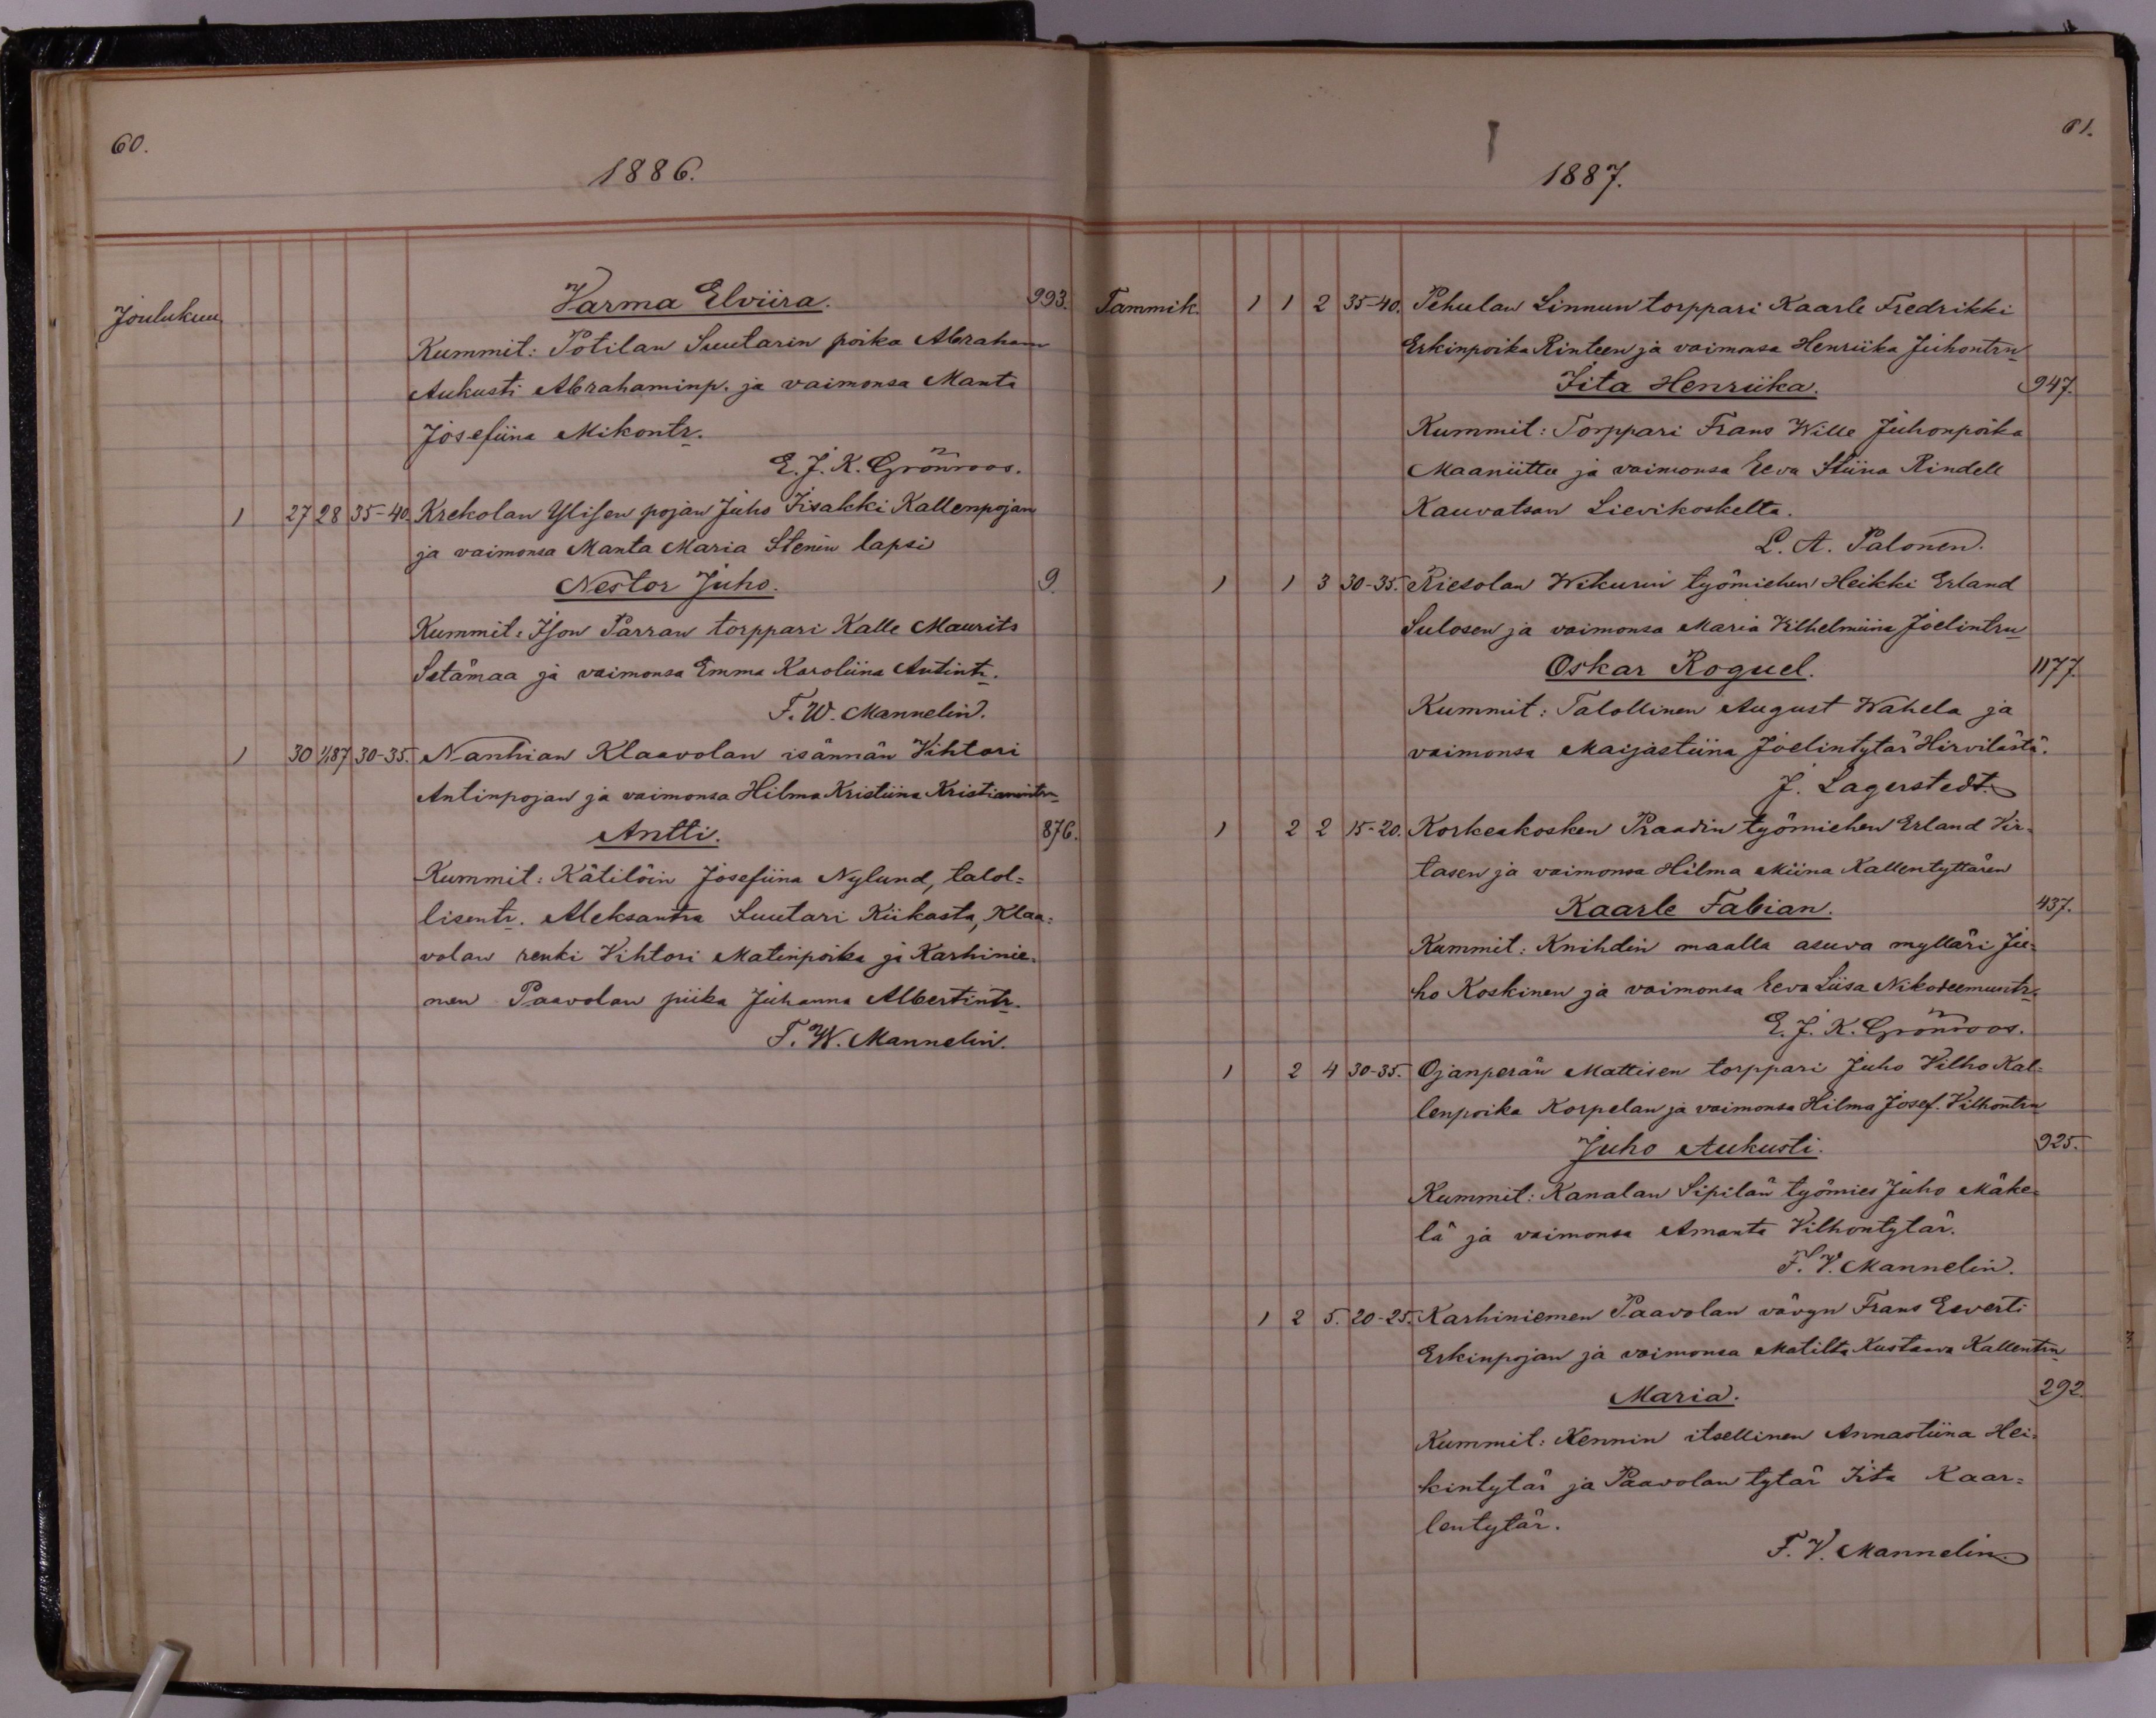 60.
1886.
Joulukuu
Varma Elviira. 993.
Kummit: Potilan Suutarin poika Abraham
Aukusti Abrahaminp. ja vaimonsa Manta
Josefiina Mikontr.
E. J. K. Grönroos.
1 27 28 35-40. Krekolan Ylisen pojan Juho Iisakki Kallenpojan
ja vaimonsa Manta Maria Stenin lapsi
Nestor Juho. 9.
Kummit: Ison Parran torppari Kalle Maurits
Satämaa ja vaimonsa Emma Karoliina Antintr.
F. W. Mannelin.
1 30 1/1 87 30-35. Nanhian Klaavolan isännän Vihtori
Antinpojan ja vaimonsa Hilma Kristiina Kristianintrn
Antti. 876.
Kummit: Kätilöin Josefiina Nylund, talol=
lisentr. Aleksantra Suutari Kiikasta, Klaa=
volan renki Vihtori Matinpoika ja Karhinie=
men Paavolan piika Juhanna Albertintr.
F. W. Mannelin.
61.
1887.
Tammik. 1 1 2 35-40. Pehulan Linnun torppari Kaarle Fredrikki
Erkinpoika Rinteen ja vaimonsa Henriika Juhontrn
Iita Henriika. 947.
Kummit: Torppari Frans Wille Juhonpoika
Maaniittu ja vaimonsa Eeva Stiina Rindell
Kauvatsan Lievikoskelta.
L. A. Palonen.
1 1 3 30-35. Riesolan Wikurin työmiehen Heikki Erland
Sulosen ja vaimonsa Maria Vilhelmiina Joelintrn
Oskar Roguel. 1177.
Kummit: Talollinen August Wahela ja
vaimonsa Maijastiina Joelintytär Hirvilästä.
J. Lagerstedt.
1 2 2 15-20. Korkeakosken Praadin työmiehen Erland Vir=
tasen ja vaimonsa Hilma Miina Kallentyttären
Kaarle Fabian. 437.
Kummit: Knihdin maalla asuva mylläri Ju=
ho Koskinen ja vaimonsa Eeva Liisa Nikodeemuntr.
E. J. K. Grönroos.
1 2 4 30-35. Ojanperän Mattisen torppari Juho Vilho Kal=
lenpoika Korpelan ja vaimonsa Hilma Josef. Vilhontrn
Juho Aukusti. 925.
Kummit: Kanalan Sipilän työmies Juho Mäke=
lä ja vaimonsa Amanta Vilhontytär.
F. V. Mannelin.
1 2 5. 20-25. Karhiniemen Paavolan vävyn Frans Eeverti
Erkinpojan ja vaimonsa Matilta Kustaava Kallentrn
Maria. 292.
Kummit: Kennin itsellinen Annastiina Hei=
kintytär ja Paavolan tytär Iita Kaar=
lentytär.
F. V. Mannelin.